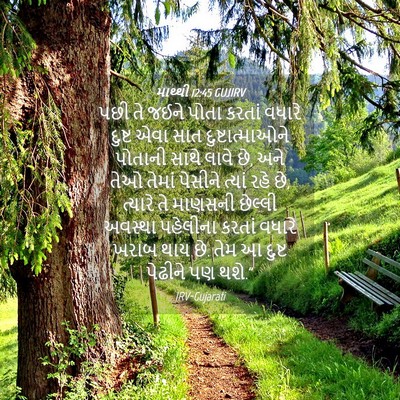 માથ્થી 12:45 GUJIRV
પછી તે જઈને પોતા કરતાં વધારે
દુષ્ટ એવા સાત દુષ્ટાત્માઓને
પોતાની સાથે લાવે છે, અને
તેઓ તેમાં પેસીને ત્યાં રહે છે,
ત્યારે તે માણસની છેલ્લી
અવસ્થા પહેલીના કરતાં વધારે
ખરાબ થાય છે. તેમ આ દુષ્ટ
પેઢીને પણ થશે.”
IRV-Gujarati